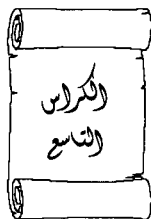 الكراس
التاسع